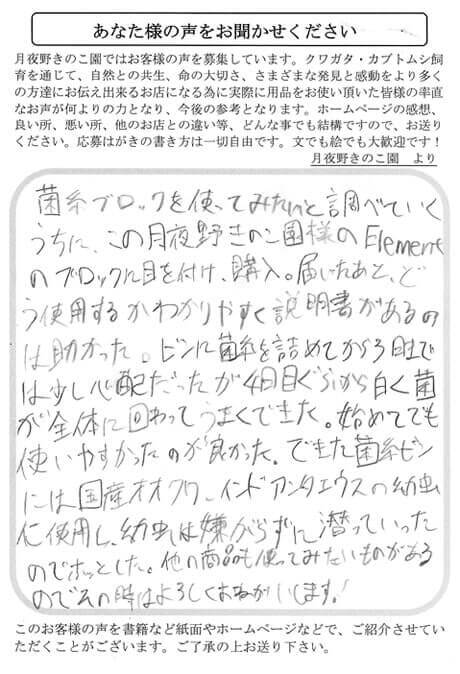 あなた様の声をお聞かせください
月夜野きのこ園ではお客様の声を募集しています。クワガタ・カブトムシ飼
育を通じて、自然との共生、命の大切さ、さまざまな発見と感動をより多く
の方達にお伝え出来るお店になる為に実際に用品をお使い頂いた皆様の率直
なお声が何よりの力となり、今後の参考となります。ホームページの感想、
良い所、悪い所、他のお店との違い等、どんな事でも結構ですので、お送り
ください。応募はがきの書き方は一切自由です。文でも絵でも大歓迎です！
月夜野きのこ園　より
菌糸ブロックを使ってみたいと調べていく
うちに、この月夜野きのこ園様のElement
のブロックに目を付け、購入。届いたあと、ど
う使用するかわかりやすく説明書があるの
は助かった。ビンに菌糸を詰めてから3日まで
は少し心配だったが4日目ぐらいから白く菌
が全体に回わってうまくできた。始めてでも
使いやすかったのが良かった。できた菌糸ビン
には国産オオクワ、インドアンタエウスの幼虫
に使用し、幼虫は嫌がらずに潜っていった
のでホッとした。他の商品も使ってみたいものがある
のでその時はよろしくおねがいします！
このお客様の声を書籍など紙面やホームページなどで、ご紹介させてい
ただくことがございます。ご了承の上お送り下さい。